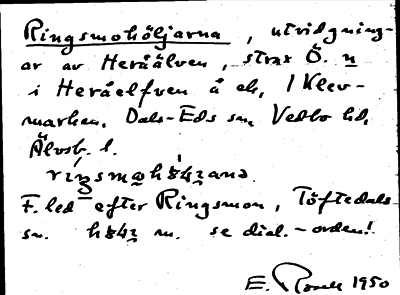 Ringsmohöljarna, utvidgning-
ar av Heråälven, strax Ö. n
i Heråelfven å ek, 1 Klev-
marken, Dals-Eds sn, Vedbo hd,
Älvsb. l.
F. led efter Ringsmon, Töftedals
sn. se dial.-orden!
E. 1950